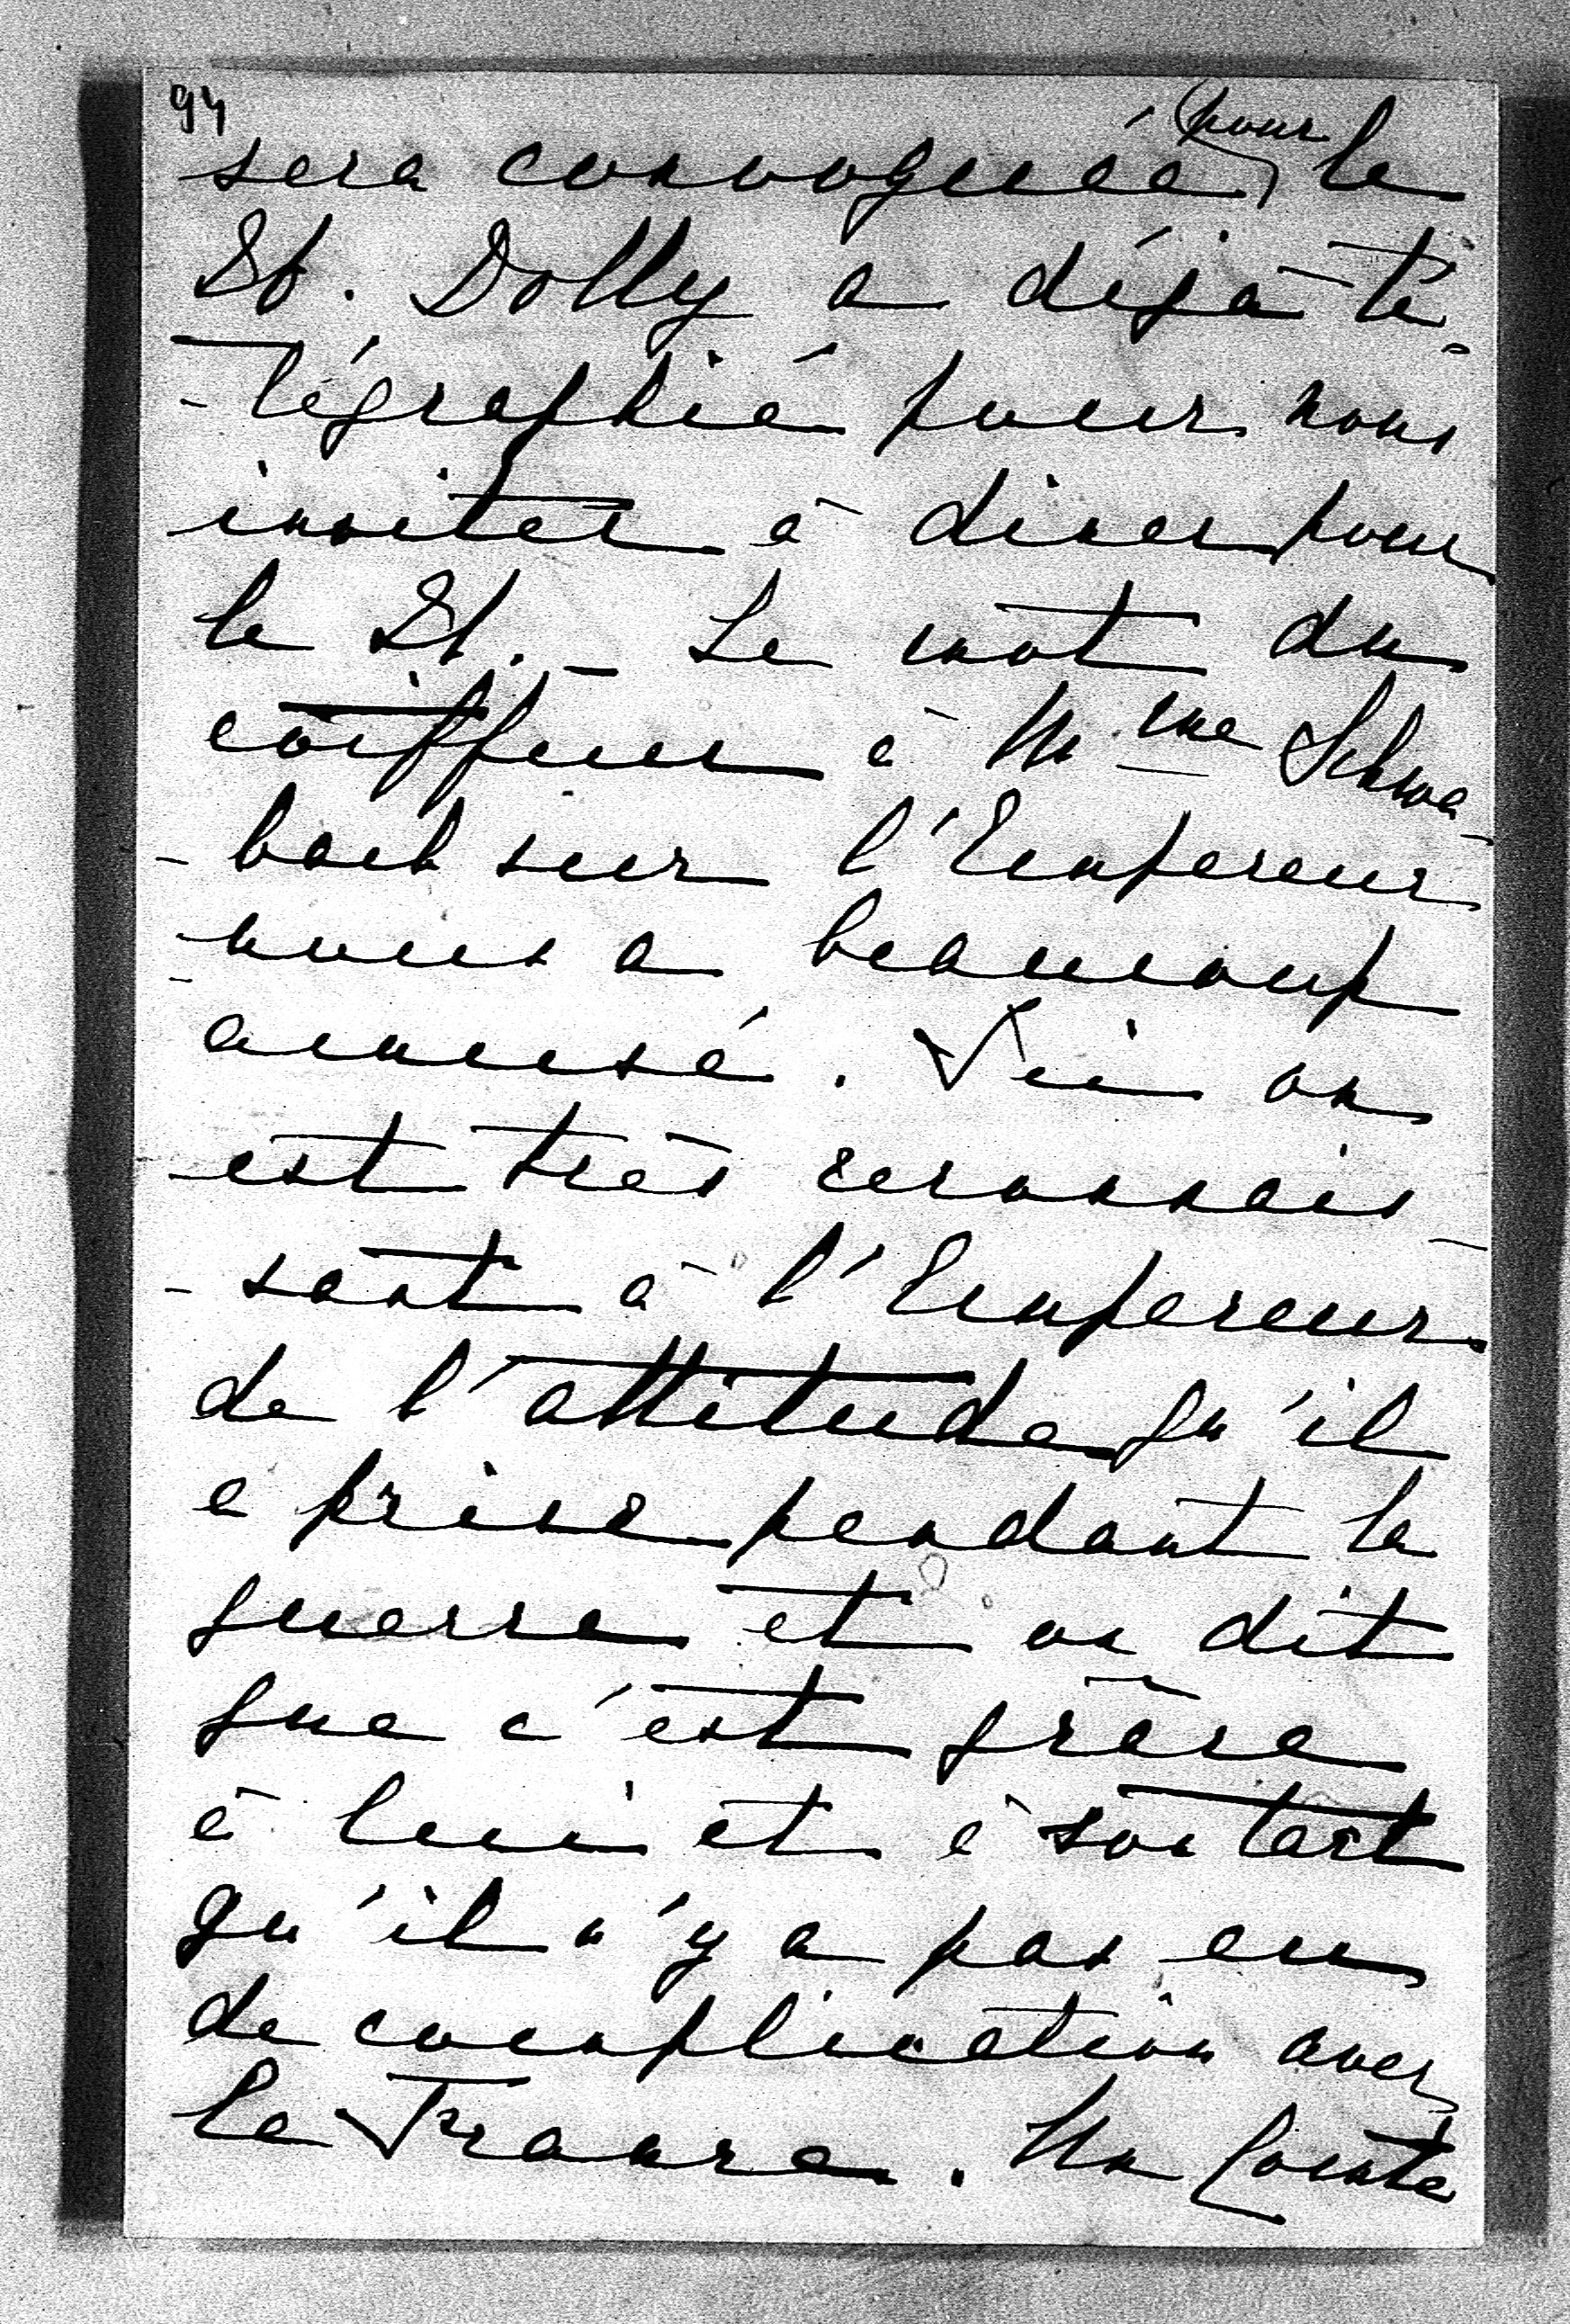 94
sera convoquée pour le
21. Dolly a déjà té-
-légraphié pour nous
inviter à diner pour
le 21. – Le mot du
coiffeur à Mme Schwa-
-bach sur l'Empereur
nous a beaucoup
amusé. Ici on
est très reconnais-
-sant à l'Empereur
de l'attitude qu'il
a prise pendant la
guerre et on dit
que c'est grâce
à lui et à son tact
qu'il n'y a pas eu
de complication avec
la France. Un Comte